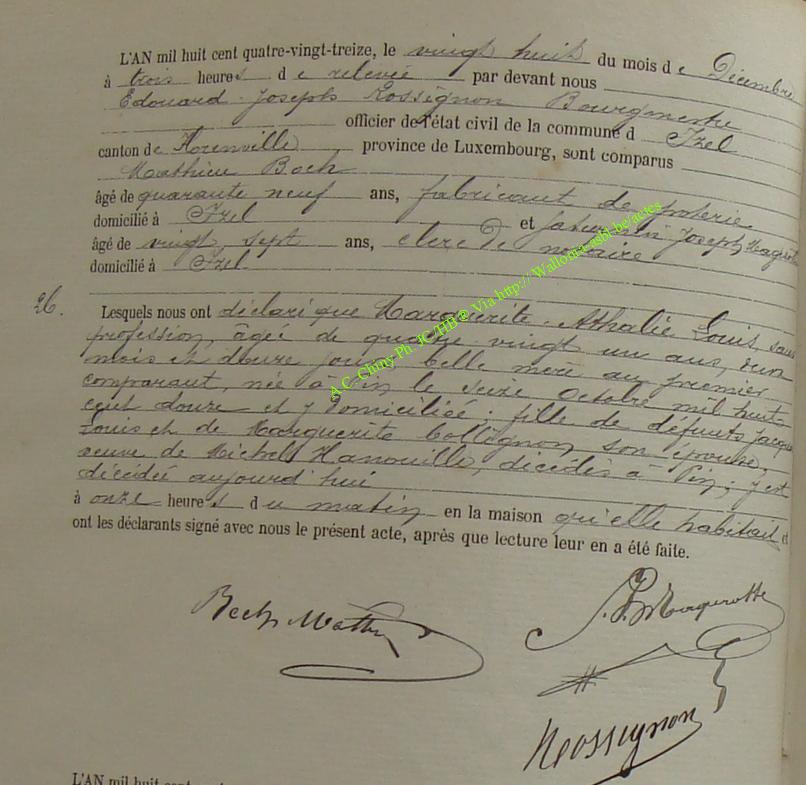 L'AN mil huit cent quatre-vingt-treize, le vingt huit du mois d e Décembre
à trois heures d e relevée par devant nous
Edouard Joseph Rossignon Bourgmestre
officier de l'état civil de la commune d Izel
canton de Florenville province de Luxembourg, sont comparus
Mathieu Bech
âgé de quarante neuf ans, fabricant de poterie
domicilié à Izel et Saturnin Joseph Magerotte
âgé de vingt sept ans, clerc de notaire
domicilié à Izel
26. Lesquels nous ont déclaré que Marguerite Athalie Louis, sans
profession, âgée de quatre vingt un ans, deux
mois et douze jours, belle mère au premier
comparant, née à Pin le seize Octobre mil huit
cent douze et y domiciliée; fille de défunts Jacques
Louis et de Marguerite Collignon, son épouse,
veuve de Michel Hanouille, décédés à Pin; y est
décédée aujourd'hui
à onze heures d u matin en la maison qu'elle habitait et
ont les déclarants signé avec nous le présent acte, après que lecture leur en a été faite.
Bech Mathieu
S. J. Magerotte
Rossignon
L'AN mil huit cent
A.C. Chiny Ph JC/HB @ Via http://Wallonia-asbl.be/actes